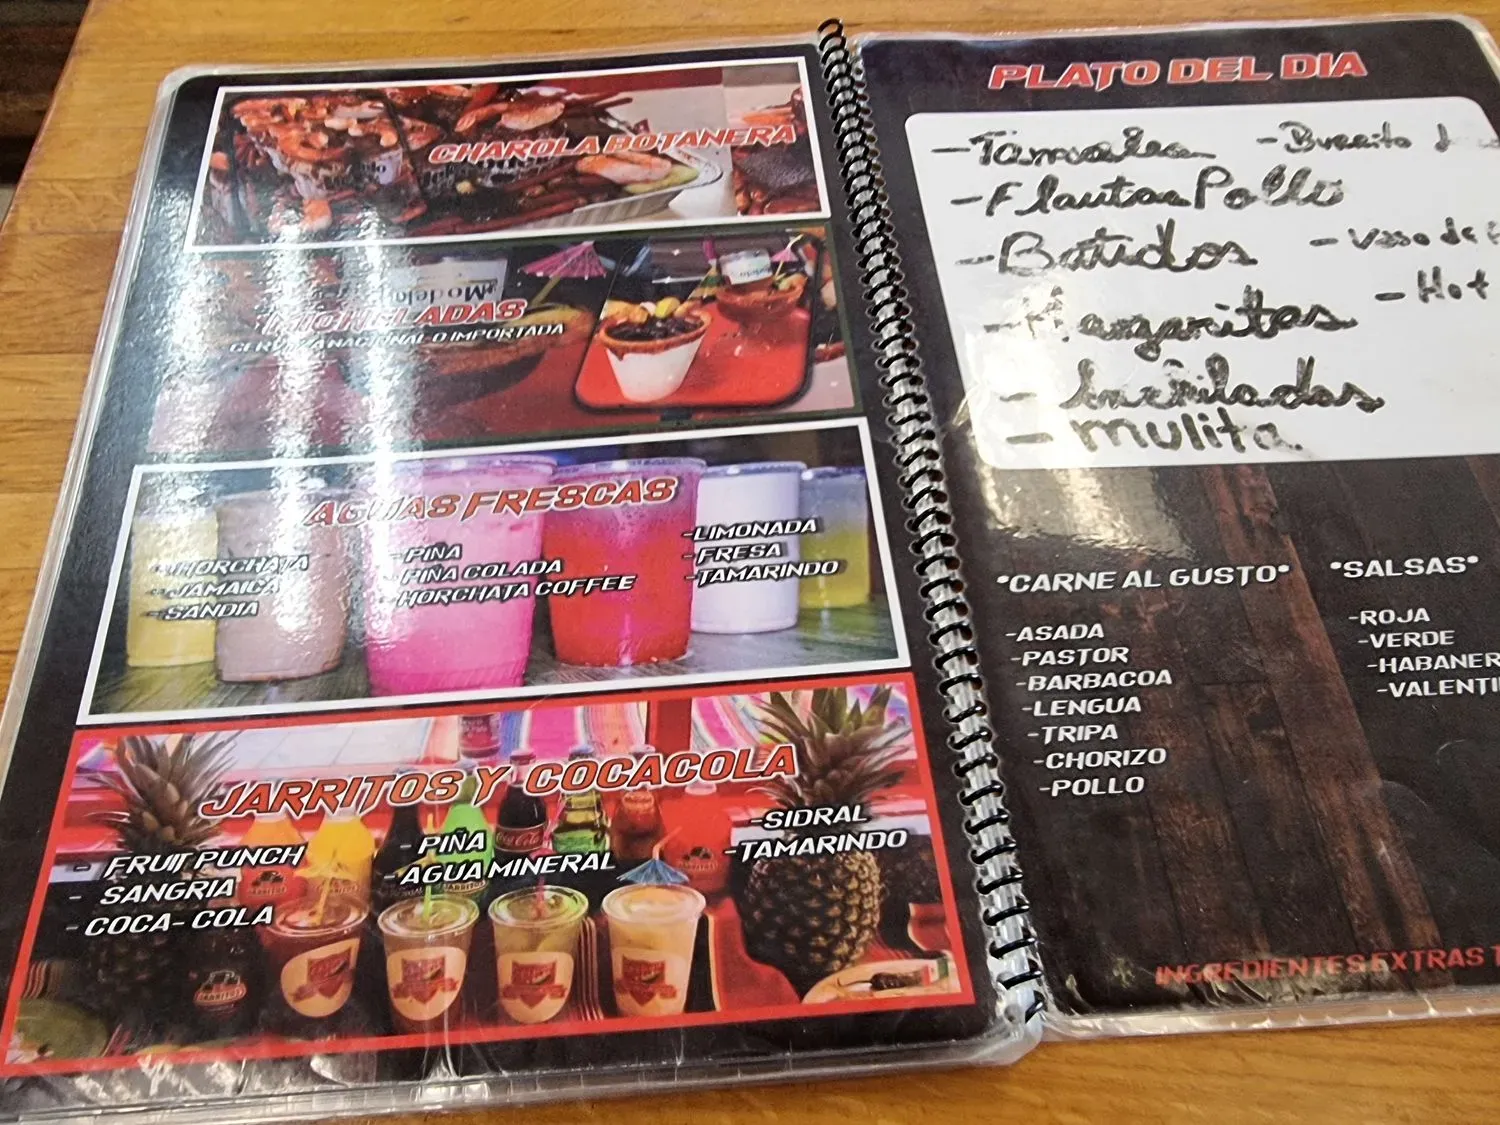 CHAROLA BOTANERA
Modelo
MICHELADAS
CERVEZA NACIONAL O IMPORTADA
AGUAS FRESCAS
-HORCHATA
-JAMAICA
-SANDIA
-PIÑA
-PIÑA COLADA
-HORCHATA COFFEE
-LIMONADA
-FRESA
-TAMARINDO
JARRITOS Y COCACOLA
- FRUIT PUNCH
- SANGRIA
- COCA-COLA
- PIÑA
- AGUA MINERAL
-SIDRAL
-TAMARINDO
PLATO DEL DIA
-Tamales
-Burrito
-Flautas Pollo
-Batidos
-Vaso de
-Margaritas
-Hot
-Enchiladas
-mulita
*CARNE AL GUSTO*
-ASADA
-PASTOR
-BARBACOA
-LENGUA
-TRIPA
-CHORIZO
-POLLO
*SALSAS*
-ROJA
-VERDE
-HABANER
-VALENTI
INGREDIENTES EXTRAS